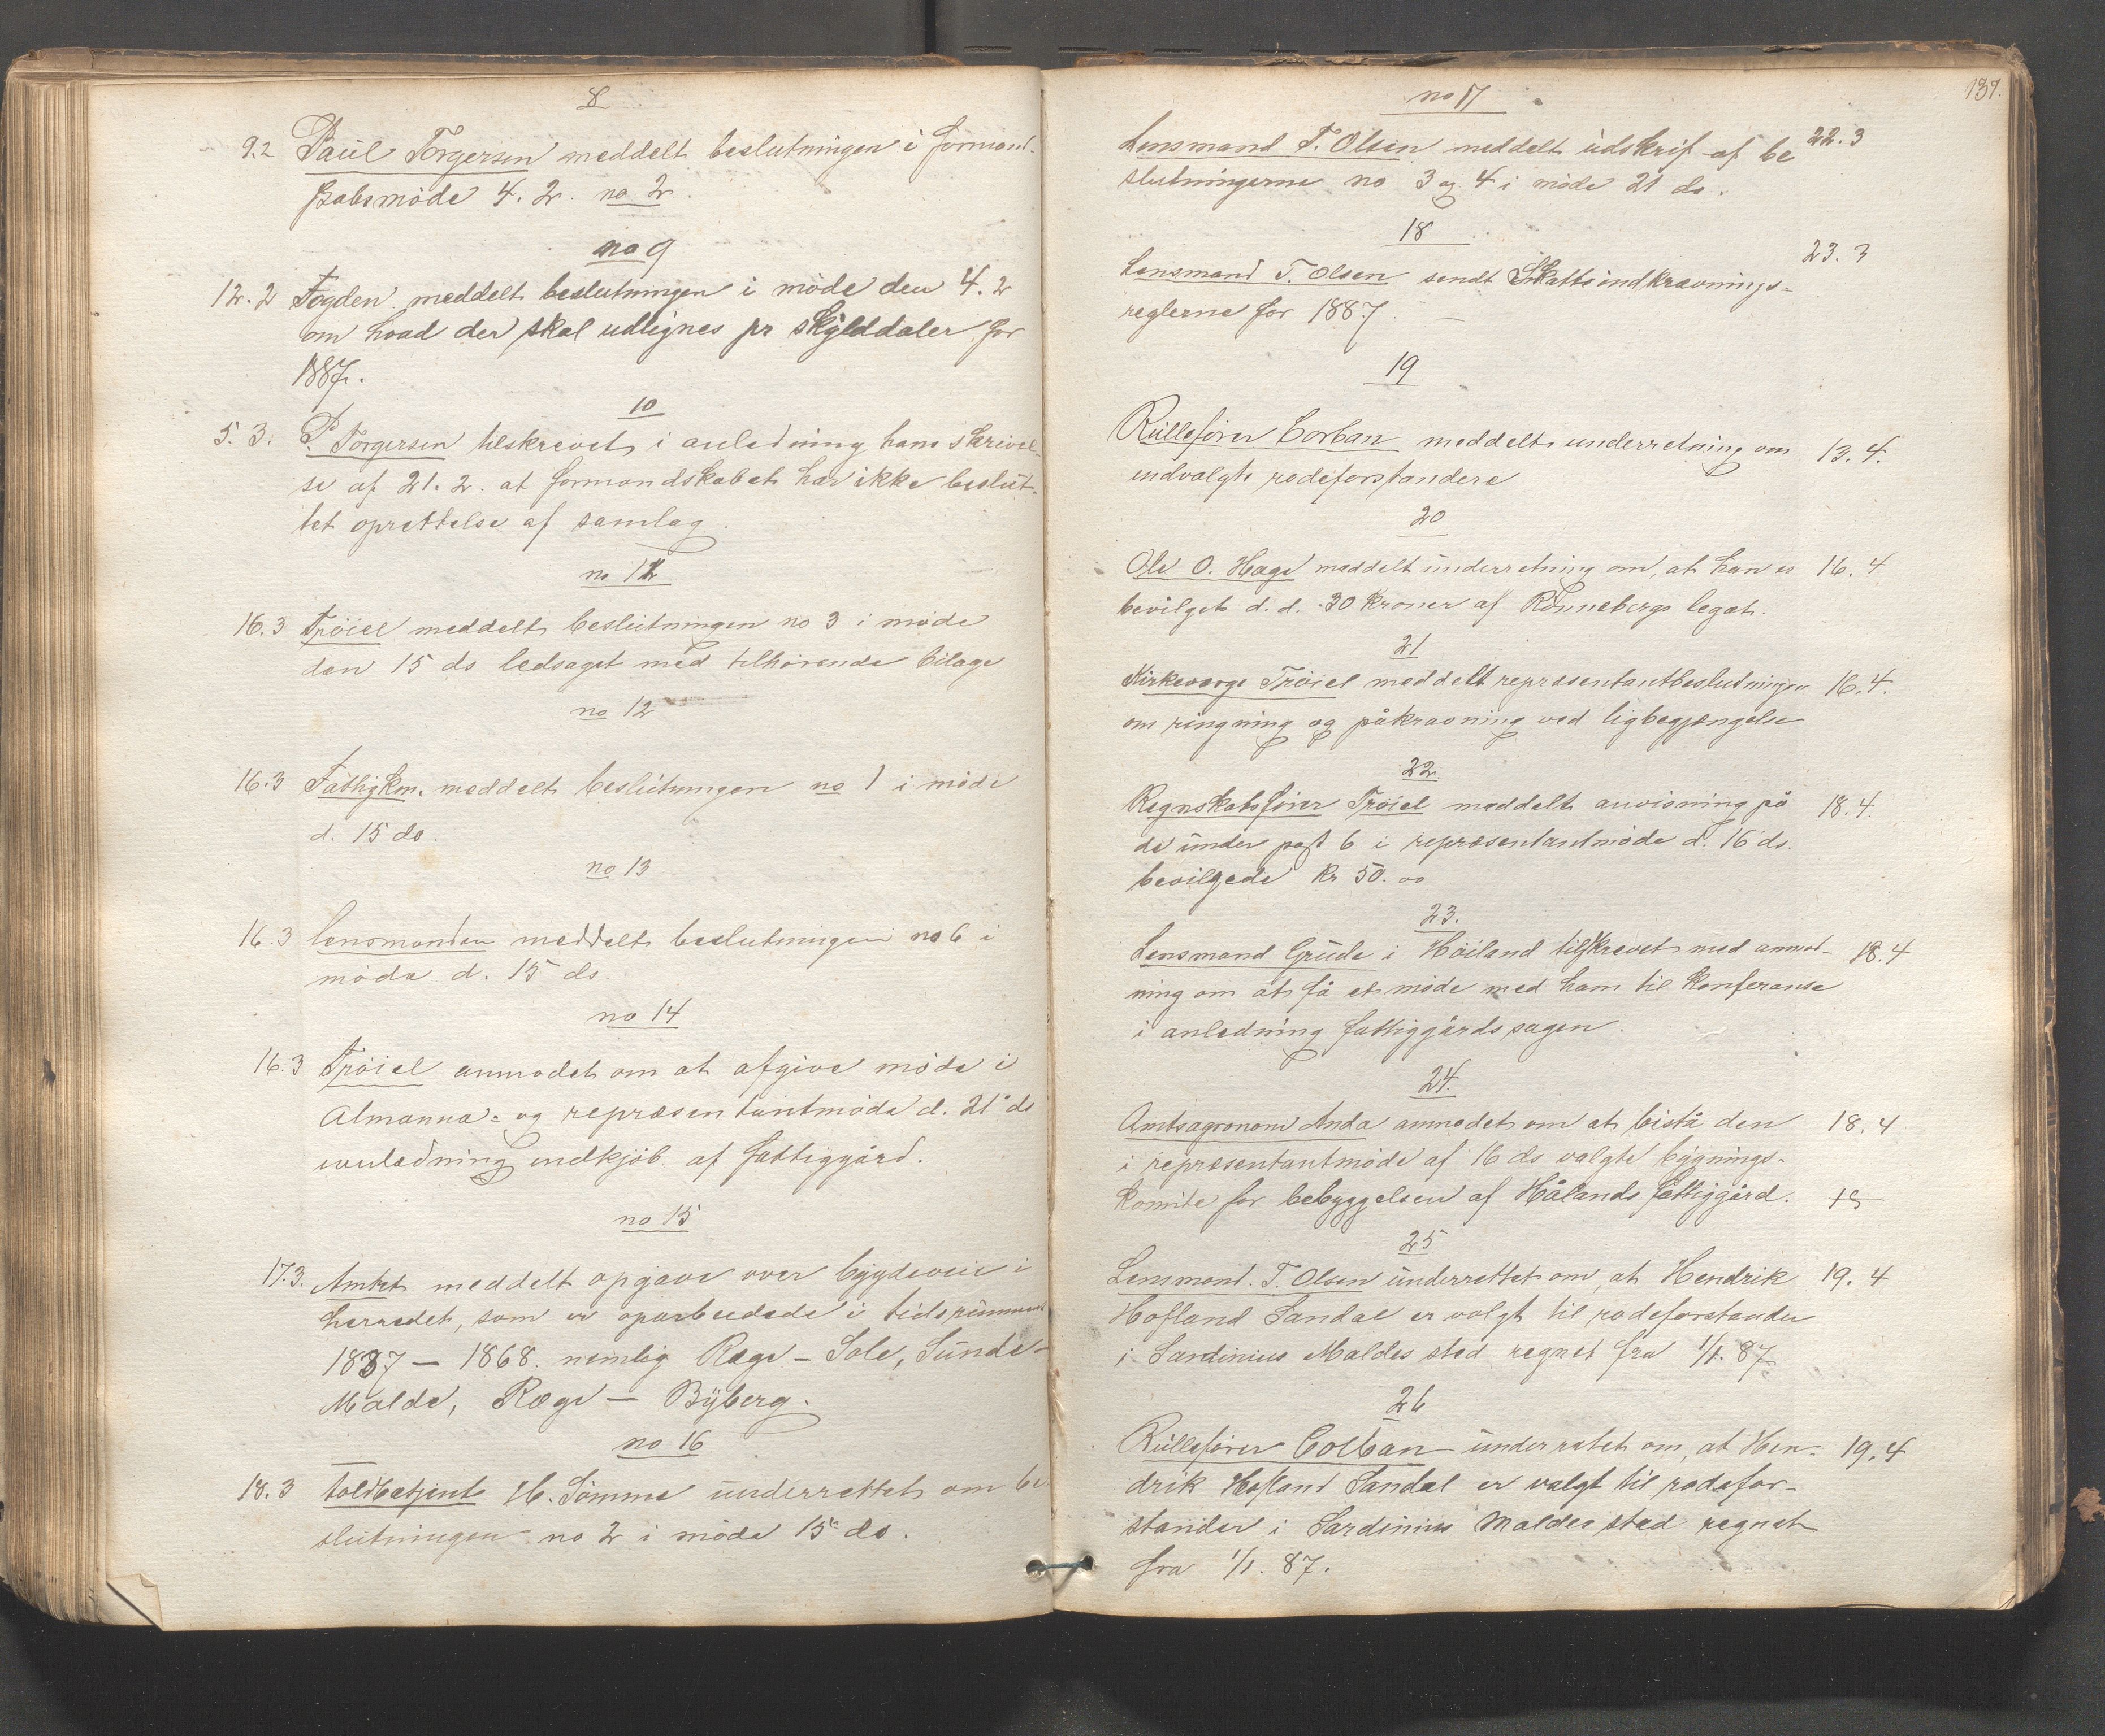 8
9.2 Paul Torgersen meddelt beslutningen i formand-
skabsmöde 4. 2. no 2.
no 9
12.2 Fogden meddelt beslutningen i möde den 4. 2
om hvad der skal udlignes pr skylddaler for
1887.
10
5. 3. P. Torgersen tilskrevet i anledning hans skrivel-
se af 21. 2. at formandskabet har ikke beslut-
tet oprettelse af samlag.
no 11
16.3 Tröiel meddelt beslutningen no 3 i möde
den 15 ds ledsaget med tilhörende bilage
no 12
16.3 Fattigkm. meddelt beslutningen no 1 i möde
d. 15 ds.
no 13
16.3 Lensmanden meddelt beslutningen no 6 i
möde d. 15 ds
no 14
16.3 Tröiel anmodet om at afgive möde i
Almanna- og repræsentantmöde d. 21 ds
i anledning indkjöb af fattiggård.
no 15
17.3. Amtet meddelt opgave over bygdeveie i
herredet, som er oparbeidede i tidsrummet
1837 — 1868. nemlig Ræge - Sole, Sunde-
Malde, Ræge — Byberg.
no 16
18.3 Toldbetjent H. Sömme underrettet om be
slutningen no 2 i möde 15 ds.
137.
no 17
Lensmand T. Olsen meddelt udskrif af be 22.3
slutningerne no 3 og 4 i möde 21 ds.
18
Lensmand T. Olsen sendt Skatteindkrævnings- 23.3
reglerne for 1887. —
19
Rulleförer Corban meddelt underretning om 13.4.
udvalgte rodeforstandere
20
Ole O. Hage meddelt underretning om, at han er 16.4
bevilget d. d. 30 kroner af Rönnebergs legat.
21
Kirkeværge Tröiel meddelt repræsentantbeslutningen 16.4.
om ringning og påkravning ved ligbegjængelse
22.
Regnskabsförer Tröiel meddelt anvisning på 18.4.
de under post 6 i repræsentantmöde d. 16 ds.
bevilgede Kr 50.00
23.
Lensmand Grude i Höiland tilskrevet med anmod- 18.4
ning om at få et möde med ham til konferanse
i anledning fattiggårdssagen.
24.
Amtsagronom Anda anmodet om at bistå den 18.4
i repræsentantmöde af 16 ds valgte bygnings-
komite for bebyggelsen af Hålands fattiggård. 18
25
Lensmand T. Olsen underrettet om, at Hendrik 19.4
Hofland Sandal er valgt til rodeforstander
i Sardinius Maldes sted regnet fra 1/1. 87
26
Rulleförer Colban underrettet om, at Hen- 19.4
drik Hofland Sandal er valgt til rodefor-
stander i Sardinius Maldes sted regnet
fra 1/1. 87.